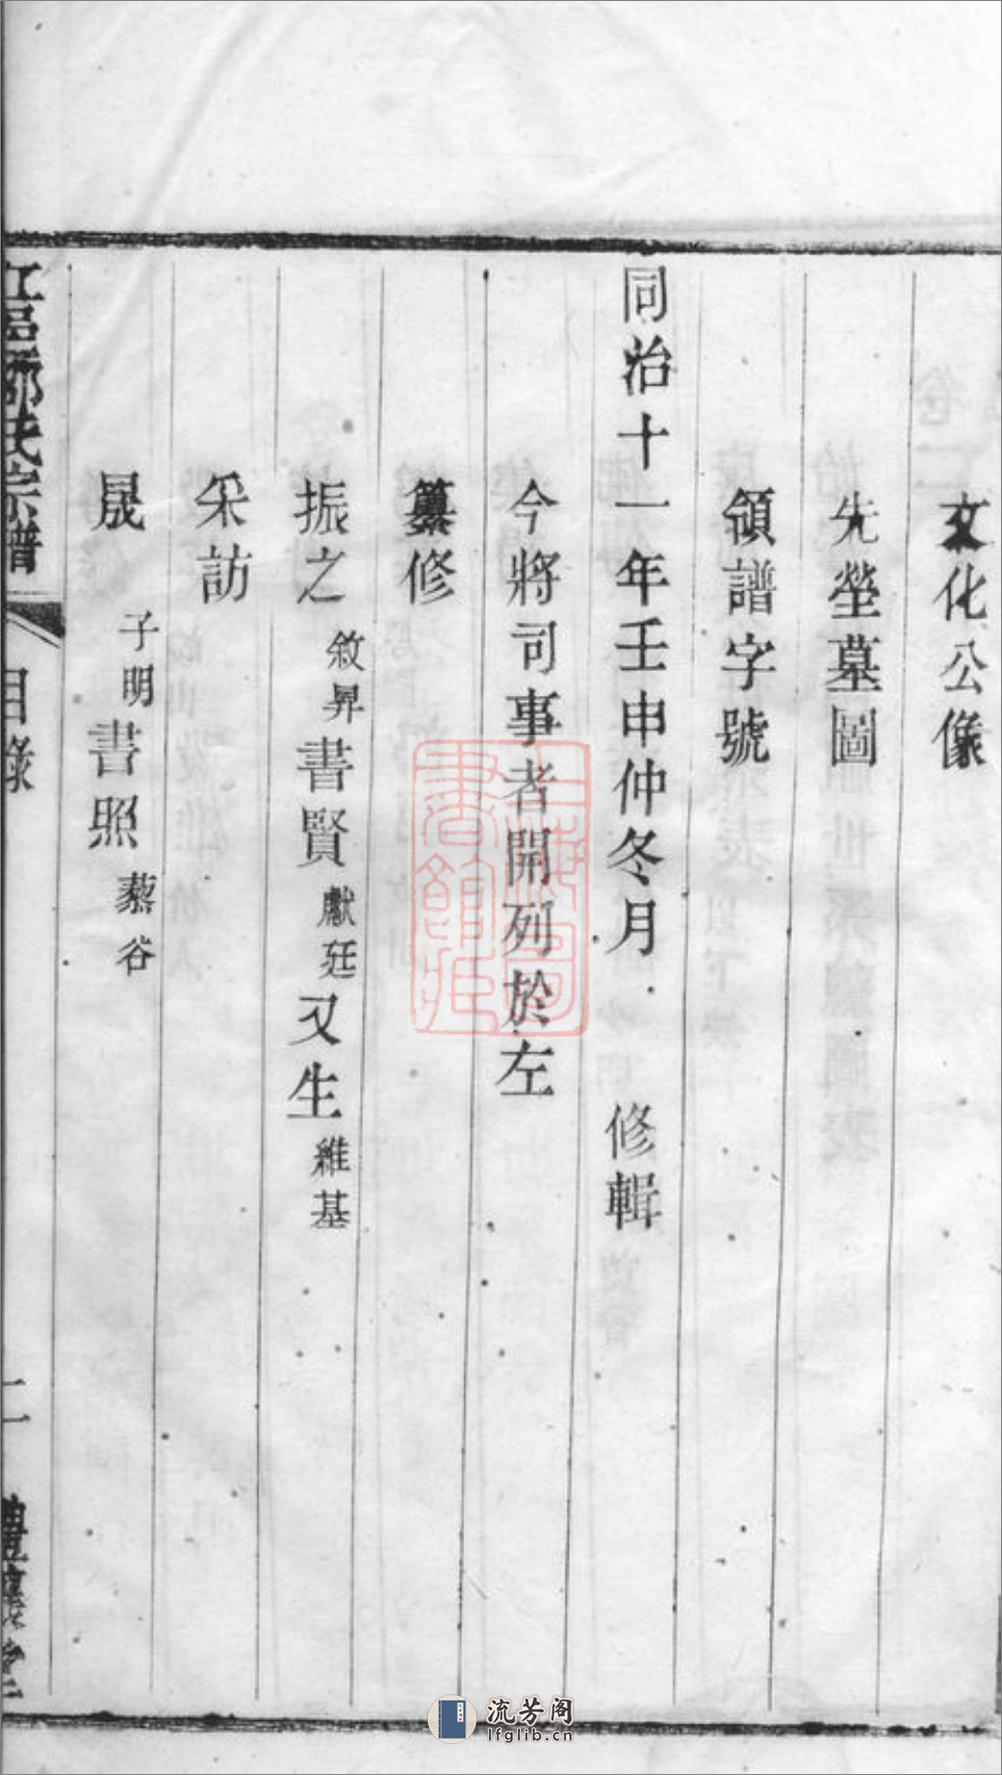 文化公像
先塋墓圖
領譜字號
同治十一年壬申仲冬月 修輯
今將司事者開列於左
纂修
振之 敘昇 書賢 獻廷 又生 維基
采訪
晟 子明 書照 藜谷
江邑鄒氏宗譜 目錄 二
上海圖書館藏
流芳阁
lfglib.cn